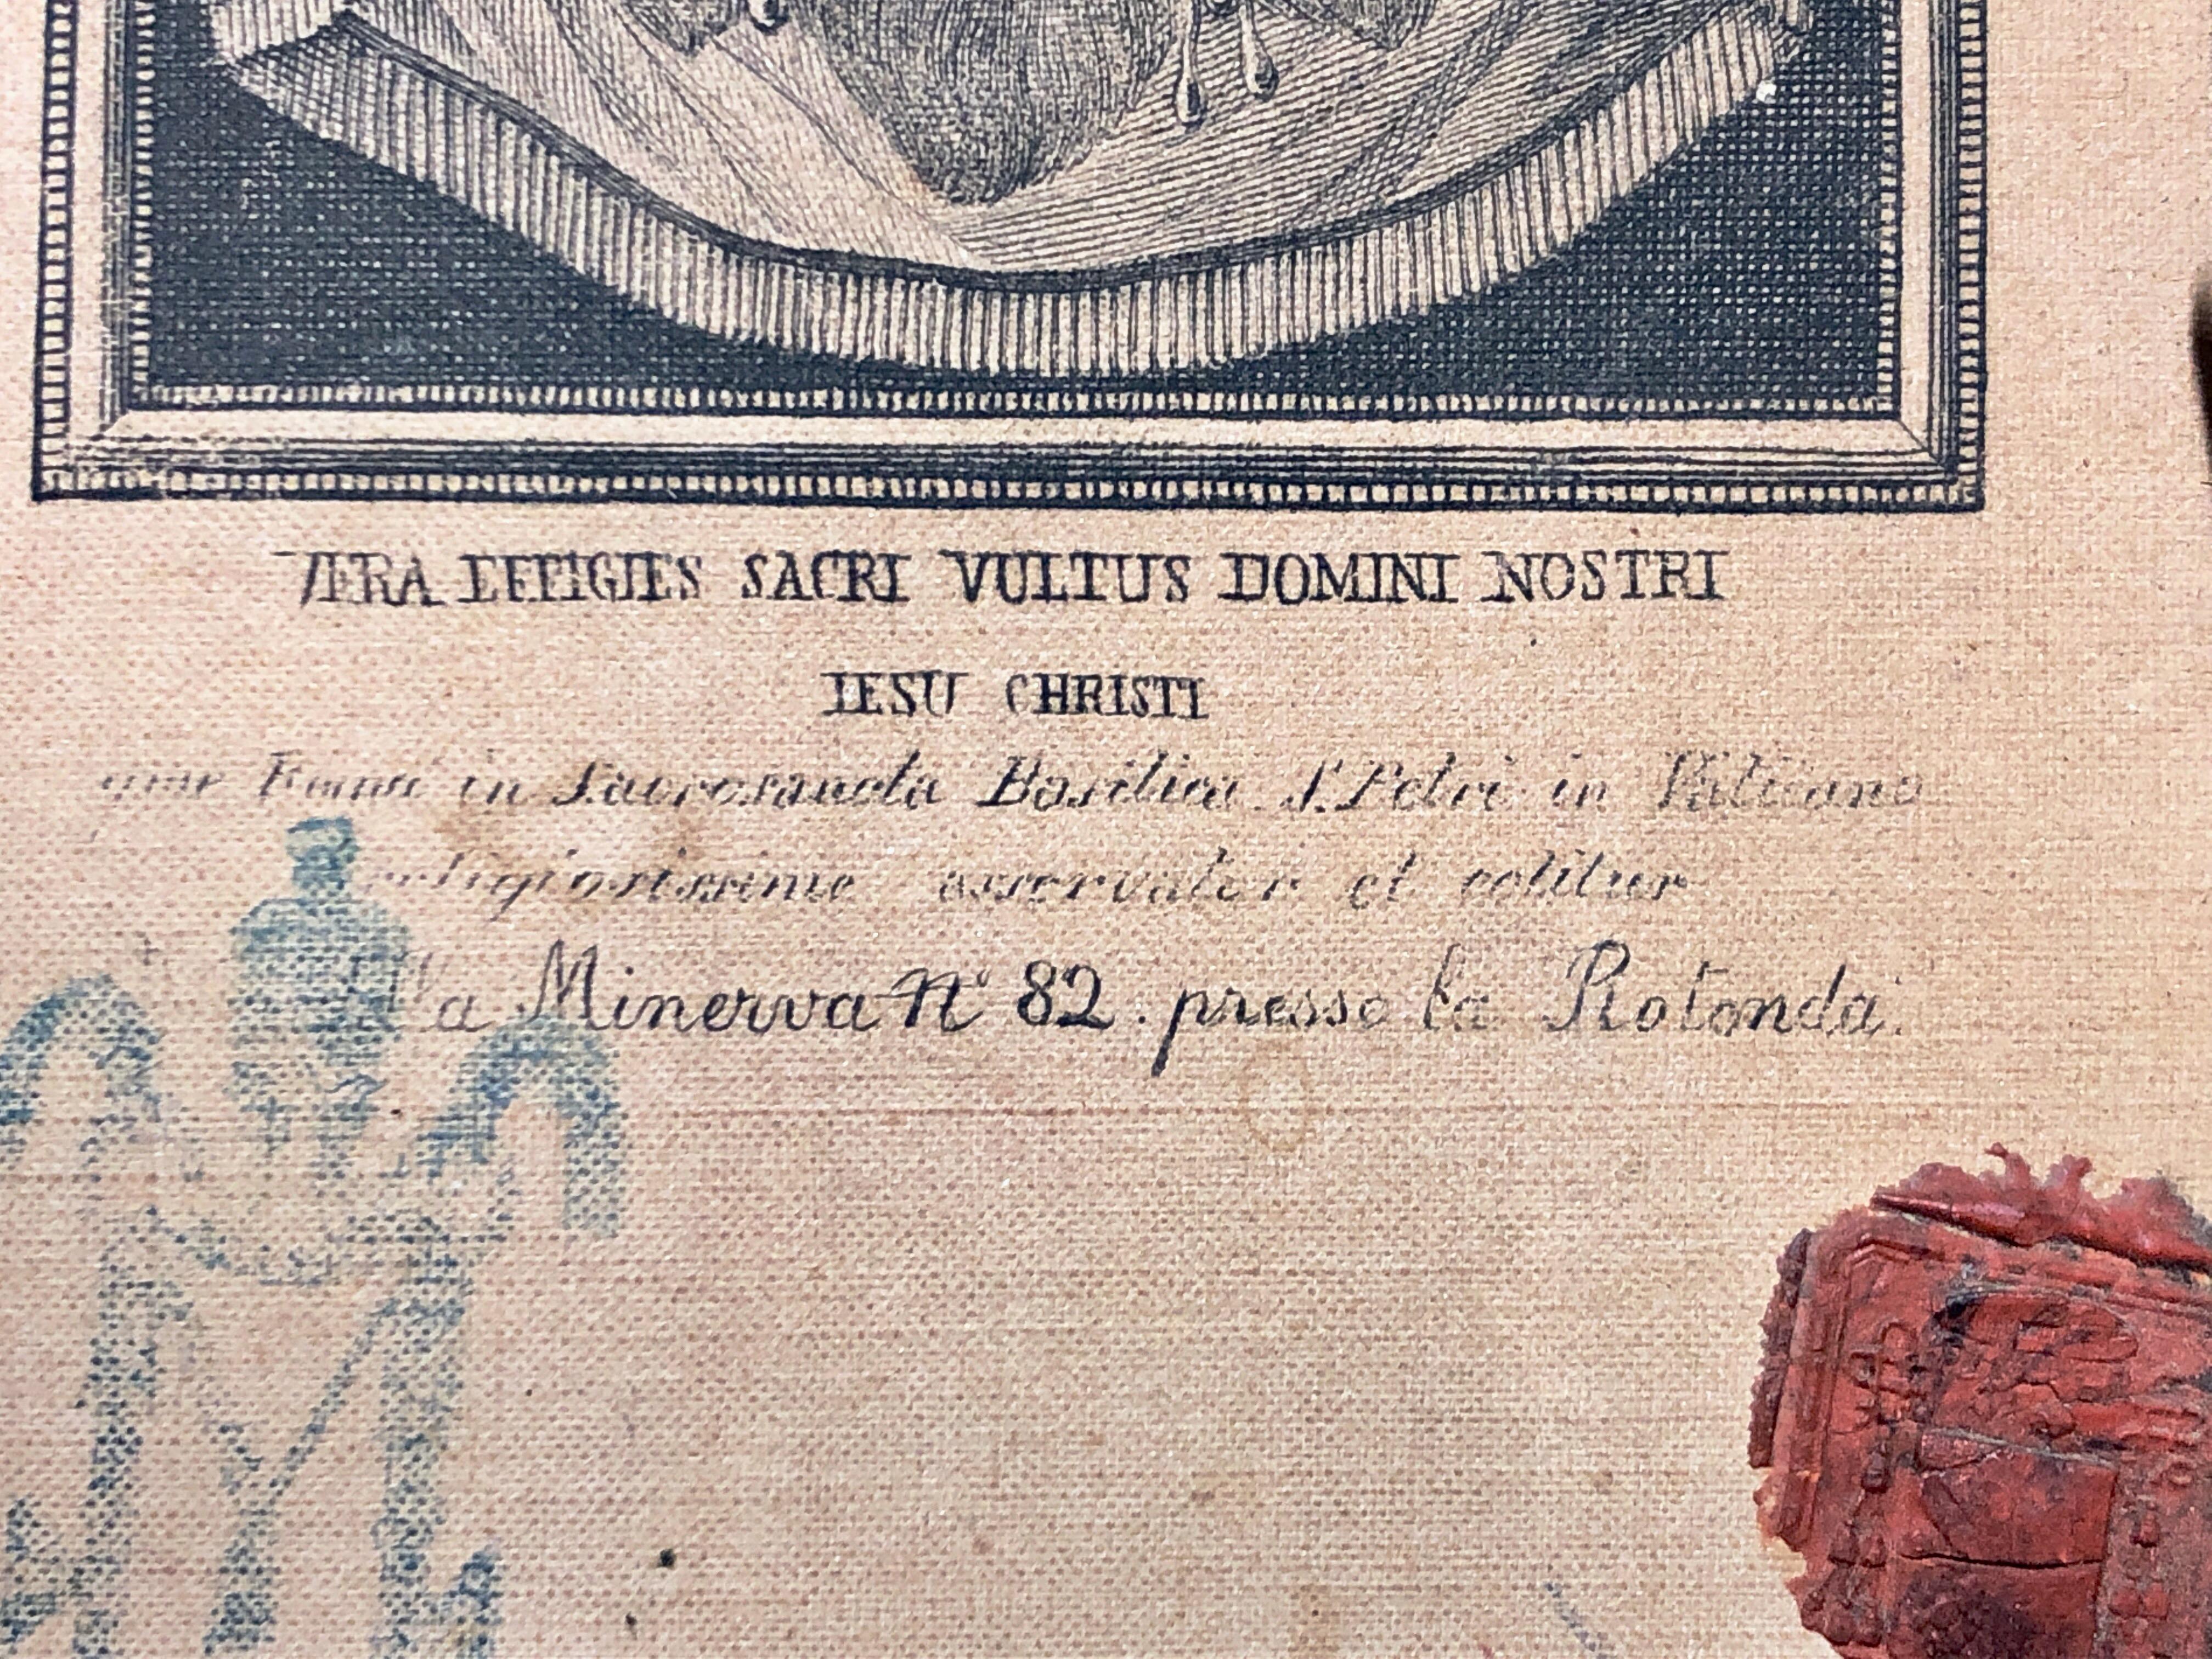 VERA EFFIGIES SACRI VULTUS DOMINI NOSTRI
IESU CHRISTI
quae Romae in Sacrosancta Basilica S. Petri in Vaticano
religiosissime asservatur et colitur
alla Minerva N° 82. presso la Rotonda.